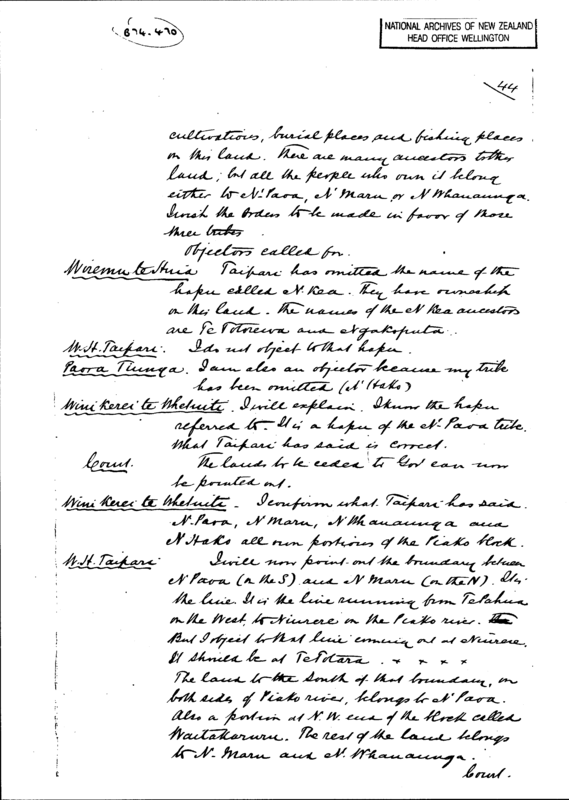 874.470
NATIONAL ARCHIVES OF NEW ZEALAND
HEAD OFFICE WELLINGTON
44
cultivations, burial places and fishing places
on this land. There are many ancestors to the
land; but all the people who own it belong
either to N' Paoa, N' Maru or N Whanaunga.
I wish the Orders to be made in favor of those
three tribes.
Objectors called for.
Wiremu te Huia Taipari has omitted the name of the
hapu called N. Kea. They have ownership
on this land. The names of the N Kea ancestors
are Te Totorewa and Ngakoputa.
W.H. Taipari. I do not object to that hapu.
Paora Tiunga. I am also an objector because my tribe
has been omitted (N' Hako)
Wini Kerei te Whetuiti. I will explain. I know the hapu
referred to. It is a hapu of the N. Paoa tribe.
What Taipari has said is correct.
Court. The lands to be ceded to Gov can now
be pointed out.
Wini Kerei te Whetuiti - I confirm what Taipari has said.
N. Paoa, N Maru, N Whanaunga and
N Hako all own portions of the Piako block.
W.H. Taipari I will now point out the boundary between
N Paoa (on the S) and N Maru (on the N). It is
the line. It is the line running from Te Pahua
on the West, to Niurere on the Piako river.
But I object to that line coming out at Niurere.
It should be at Te Totara. * * * *
The land to the South of that boundary, on
both sides of Piako river, belongs to N' Paoa.
Also a portion at N.W. end of the block called
Waitakaruru. The rest of the land belongs
to N. Maru and N. Whanaunga.
Court.